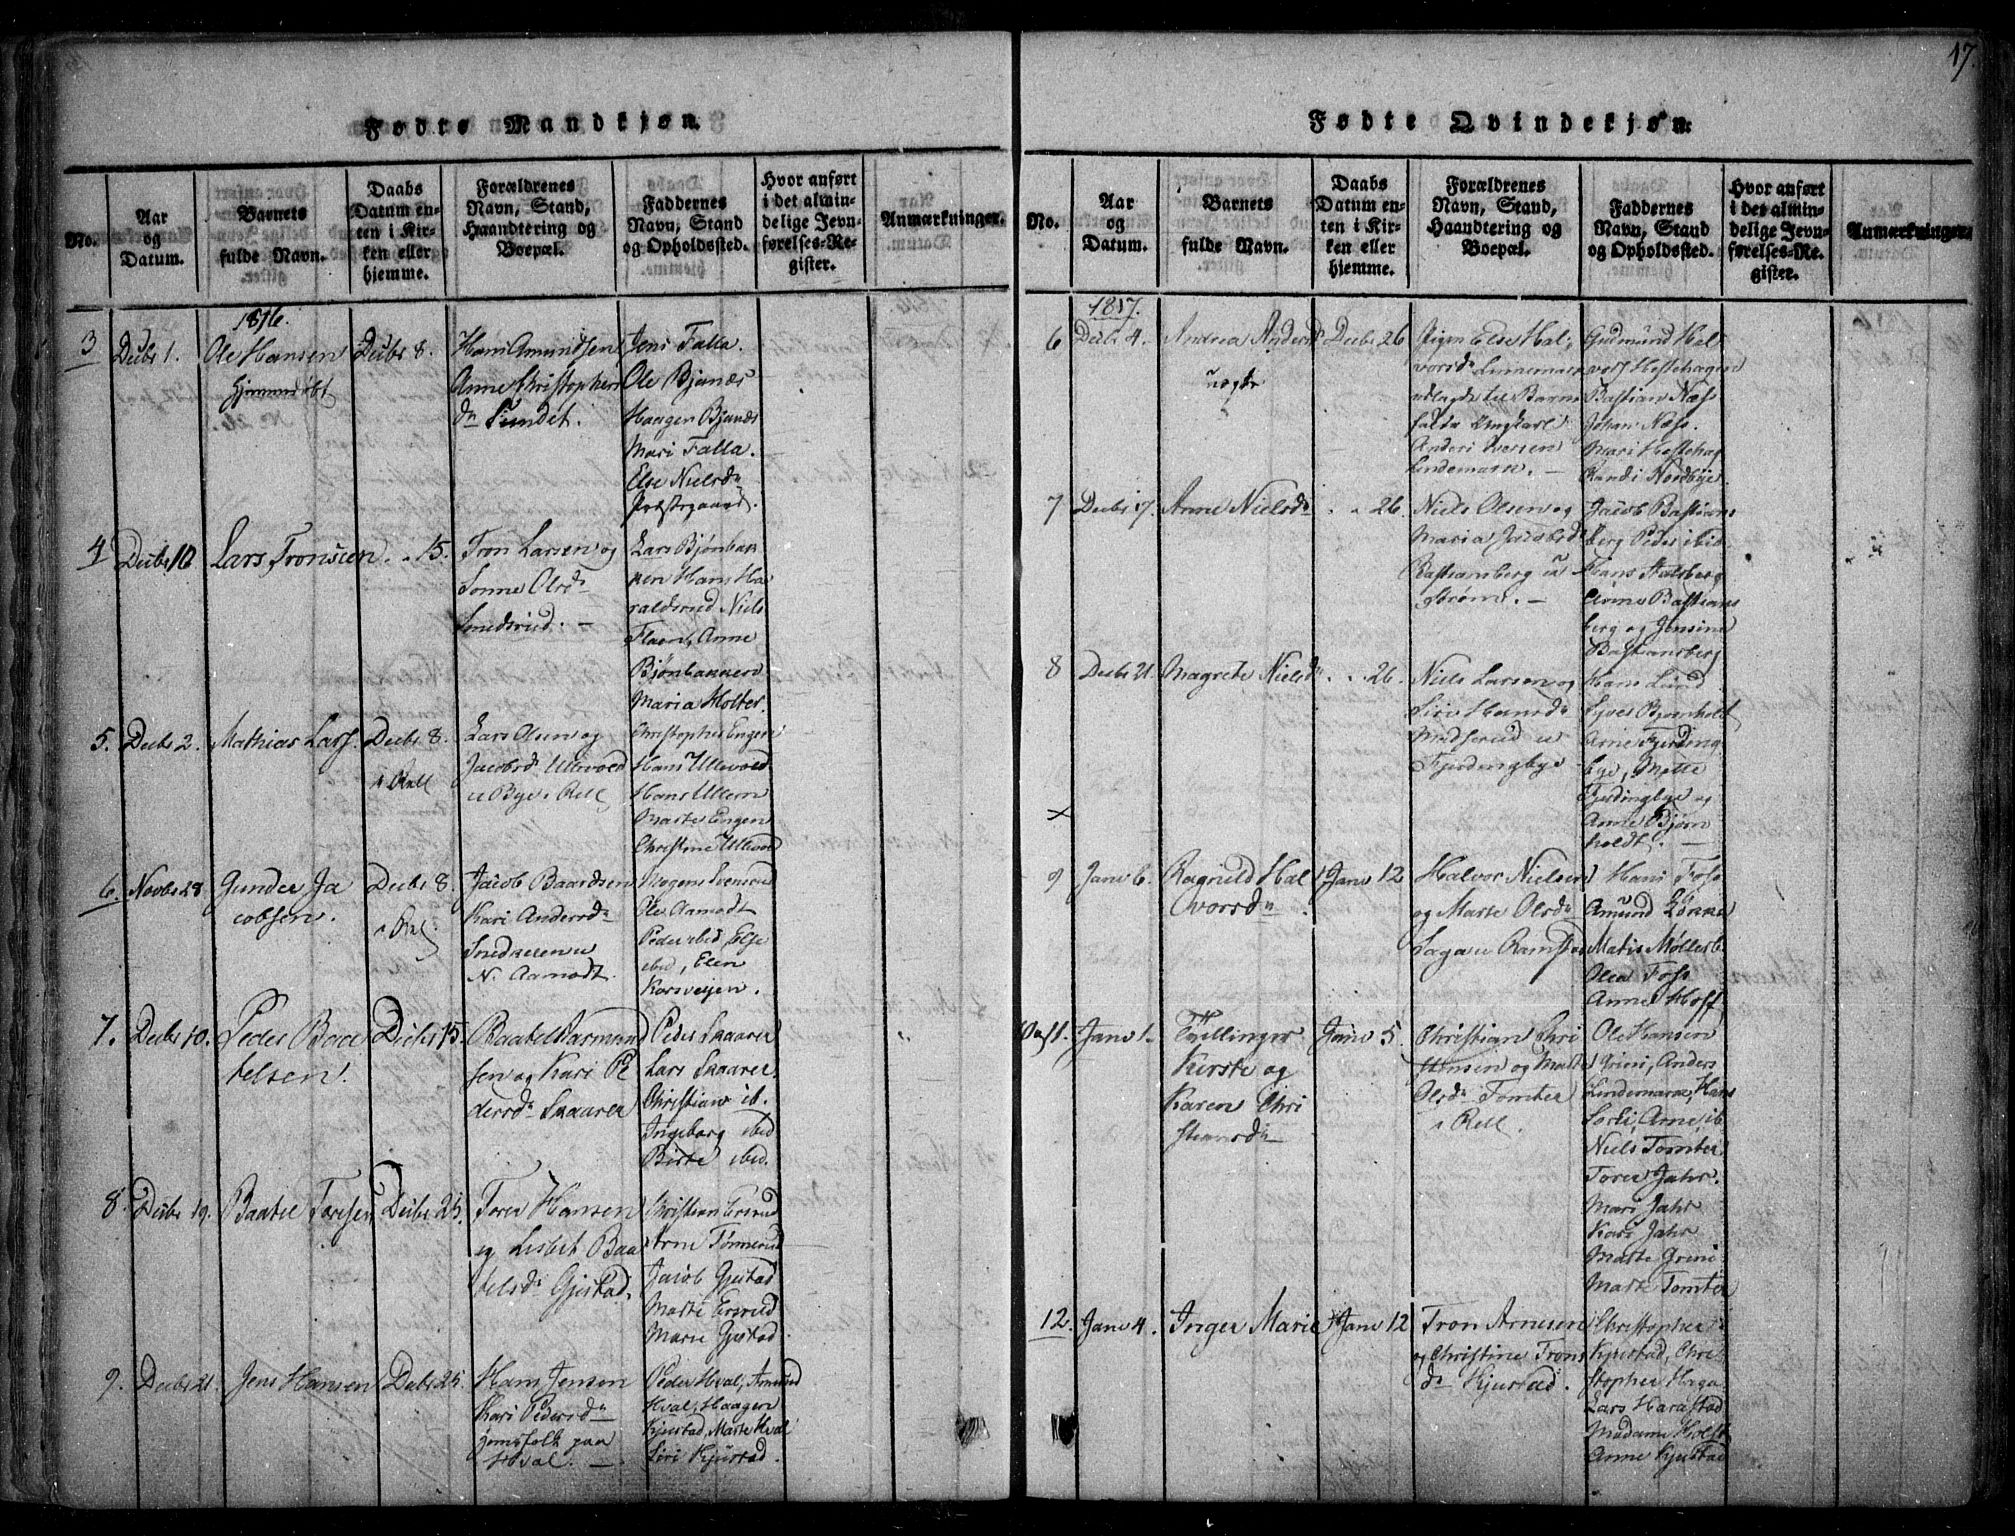 17.
Fødte Mandkjøn.
No.
Aar
og
Datum.
Barnets
fulde Navn.
Daabs
Datum en-
ten i Kir-
ken eller
hjemme.
Forældrenes
Navn, Stand,
Haandtering og
Boepæl.
Faddernes
Navn, Stand
og Opholdssted.
Hvor anført
i det almin-
delige Jevn-
førelses-Re-
gister.
Anmærkninger.
1816.
3
Decbr 1.
Ole Hansen
hjemmedøbt
Decbr 8.
Hans Amundsen
Anne Christophers
dr Sundet.
Jens Falla.
Ole Bjanæs
Haagen Bjanæs
Mari Falla.
Else Nielsdr
Præstegaard.
4
Decbr 10
Lars Tronsen
. . 15.
Tron Larsen og
Sonne Olsdr
Smedsrud. —
Lars Bjønbak
ken Hans Ha
raldsrud Niels
Flaen, Anne
Bjønbakken
Maria Holter.
5.
Decbr 2.
Mathias Lars.
Decbr 8.
i Rell
Lars Olsen og
Jacobsdr Ullevold
u Bye i Rell
Christopher Engen
Hans Ullevold
Hans Ullern
Marte Engen
Christine Ullevold
6.
Novbr 28
Gunder Ja
cobsen.
Decbr 8.
i Rel:
Jacob Baardsen
Kari Andersdr
Snedkeren u
N. Aamodt.
Mogens Svensrud
Ole Aamodt
Peder ibid, Else
ibid, Elen
Korsveyen.
7.
Decbr 10.
Peder Baa
telsen.
Decbr 15.
Baatel Asmund
sen og Kari Pe
dersdr Skaarer
Peder Skaarer
Lars Skaarer
Christian ib.
Ingeborg ibid
Birte ibid.
8.
Decbr 19.
Baatel Toresen
Decbr 25.
Tore Hansen
og Lisbet Baa
telsdr Gjestad.
Christian Ersrud
Arne Tønnerud
Jacob Gjestad
Marte Ersrud
Marie Gjestad.
9.
Decbr 21.
Jens Hansen
Decbr 25.
Hans Jensen
Kari Pedersdr
huusfolk paa
Hval. —
Peder Hval, Amund
Hval, Haagen
Kjustad, Marte Hval
Siri Kjustad.
Fødte Qvindekjøn:
No.
Aar
og
Datum.
Barnets
fulde Navn.
Daabs
Datum en-
ten i Kir-
ken eller
hjemme.
Forældrenes
Navn, Stand,
Haandtering og
Boepæl.
Faddernes
Navn, Stand
og Opholdssted.
Hvor anført
i det almin-
delige Jevn-
førelses-Re-
gister.
Anmærkninger.
1817.
6
Decbr 4.
Andrea Andersdr
uægte
Decbr 26
Pigen Else Hal-
vorsdr Lindemarn
udlagde til Barne
fader Ungkarl
Anders Iversen
Lindemarn. —
Gudmund Hal
vors Hestehagen
Bastian Næss
Johan Næss.
Mari Hestehag
Randi Nordbye.
7
Decbr 17.
Anne Nielsdr
. . 26.
Niels Olsen og
Maria Jacobsdr
Bastianberg u
Strøm. —
Jacob Bastians
berg Peder ibid.
Hans Aalsberg
Anne Bastians
berg og Jensine
Bastiansberg
8
Decbr 21.
Magrete Nielsdr
. . 26.
Niels Larsen og
Siri Hansdr
Midserud u
Fjerdingbye
Hans Lund
Syver Bjørnholt
Arne Fjerding
bye, Mette
Fjerdingbye og
Anne Bjørn
holdt. —
×
9
Janv 6.
Ragnild Hal
vorsdr
Janv 12
Halvor Nielsen
og Marte Olsdr
Hans Foss
Amund Løkke
Matis Møllerb.
Olea Foss
Anne Hoff
10 og 11.
Janv 1.
Tvillinger
Kirste og
Karen Chri
stiansdr
Janv 5.
Christian Chri
stensen og Marte
Olsdr Tomter
i Rell.
Ole Hansen
Grini, Anders
Lindemarn, Hans
Sorli, Arne ib
Niels Tomter
Tore Jahr.
Mari Jahr
Kari Jahr
Marte Grini
Marte Tomter
12.
Janv 4.
Inger Marie
Janv 12
Tron Arnesen
og Christine Trons
dr Kjustad.
Christopher
Kjustad, Chri-
stopher Haga
Lars Harastad
Madame Holst
Anne Kjustad